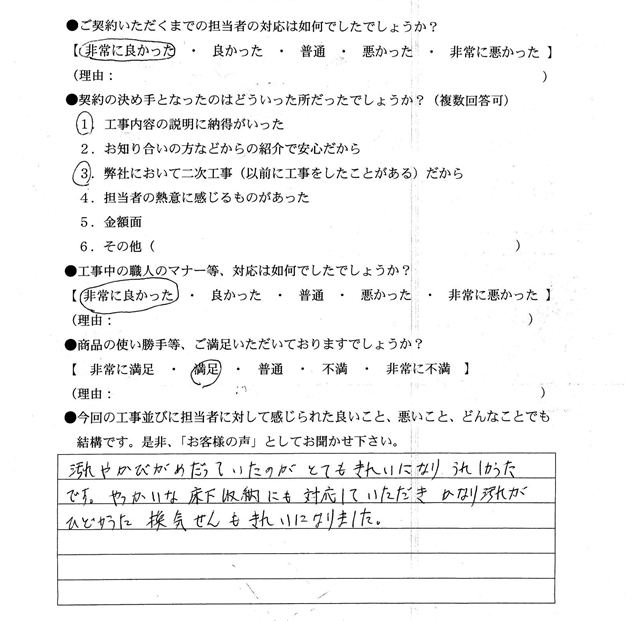 ●ご契約いただくまでの担当者の対応は如何でしたでしょうか？
【 非常に良かった ・ 良かった ・ 普通 ・ 悪かった ・ 非常に悪かった 】
（理由： ）
●契約の決め手となったのはどういった所だったでしょうか？（複数回答可）
1．工事内容の説明に納得がいった
2．お知り合いの方などからの紹介で安心だから
3．弊社において二次工事（以前に工事をしたことがある）だから
4．担当者の熱意に感じるものがあった
5．金額面
6．その他（ ）
●工事中の職人のマナー等、対応は如何でしたでしょうか？
【 非常に良かった ・ 良かった ・ 普通 ・ 悪かった ・ 非常に悪かった 】
（理由： ）
●商品の使い勝手等、ご満足いただいておりますでしょうか？
【 非常に満足 ・ 満足 ・ 普通 ・ 不満 ・ 非常に不満 】
（理由： ）
●今回の工事並びに担当者に対して感じられた良いこと、悪いこと、どんなことでも
結構です。是非、「お客様の声」としてお聞かせ下さい。
汚れやかびがめだっていたのが とてもきれいになり うれしかった
です。やっかいな 床下収納にも 対応していただき かなり汚れが
ひどかった 換気せんもきれいになりました。